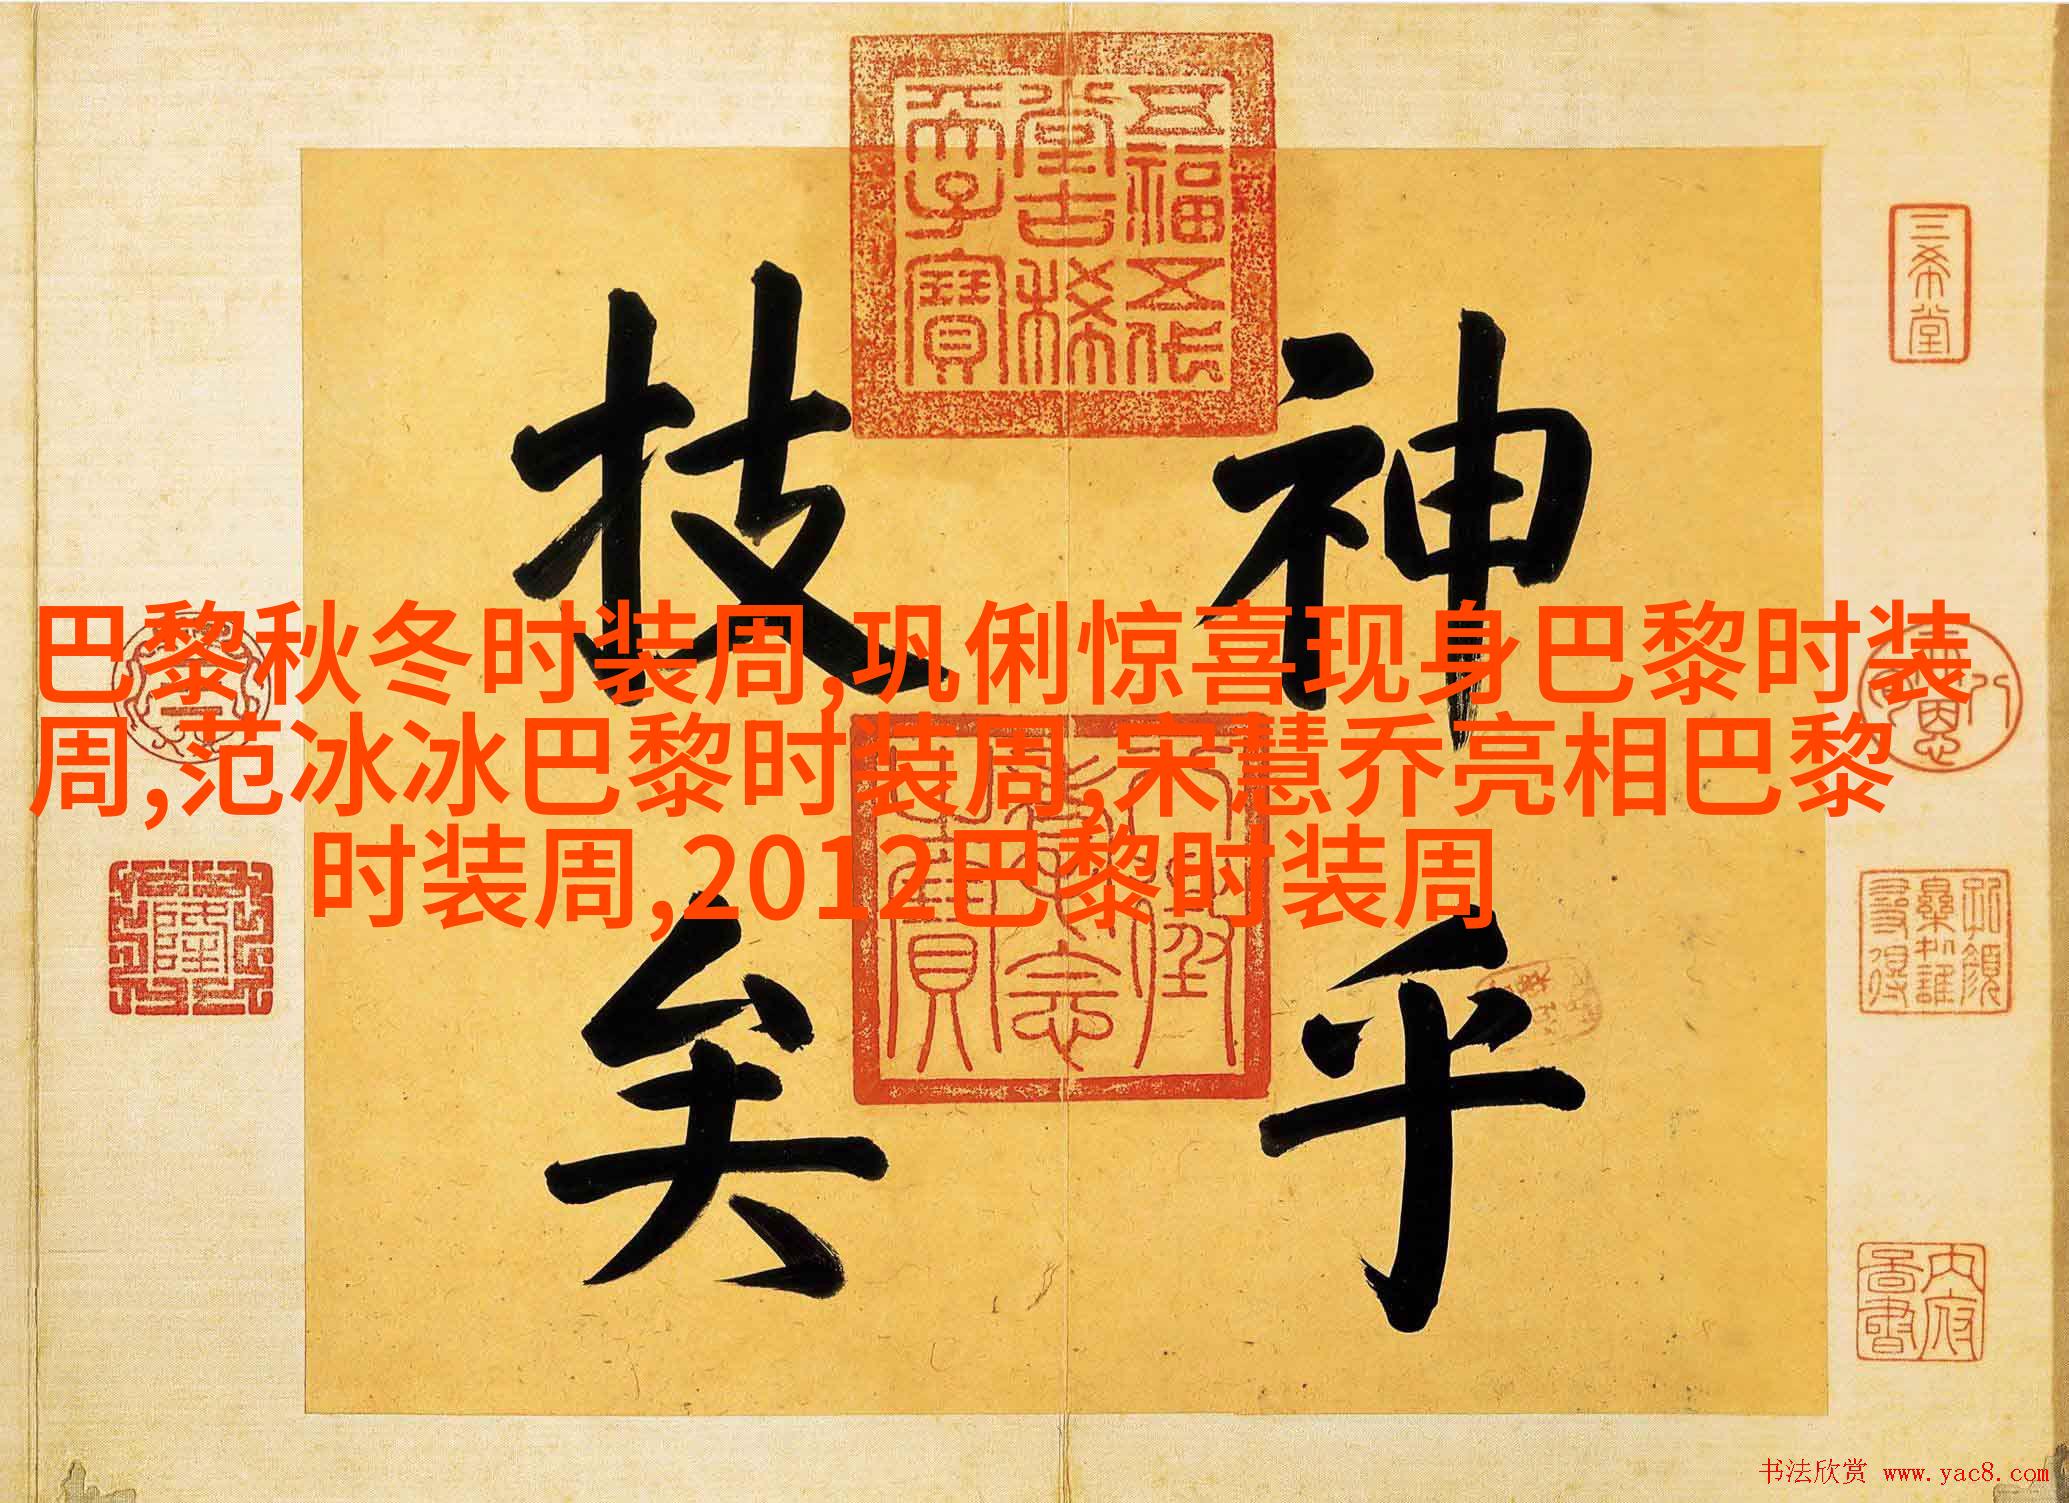 神乎
技矣
巴黎秋冬时装周,巩俐惊喜现身巴黎时装
周,范冰冰巴黎时装周,宋慧乔亮相巴黎
时装周,2012巴黎时装周
五福五代
堂古稀
天子寶
三希堂
内府
書畫
书法欣赏 www.yac8.com